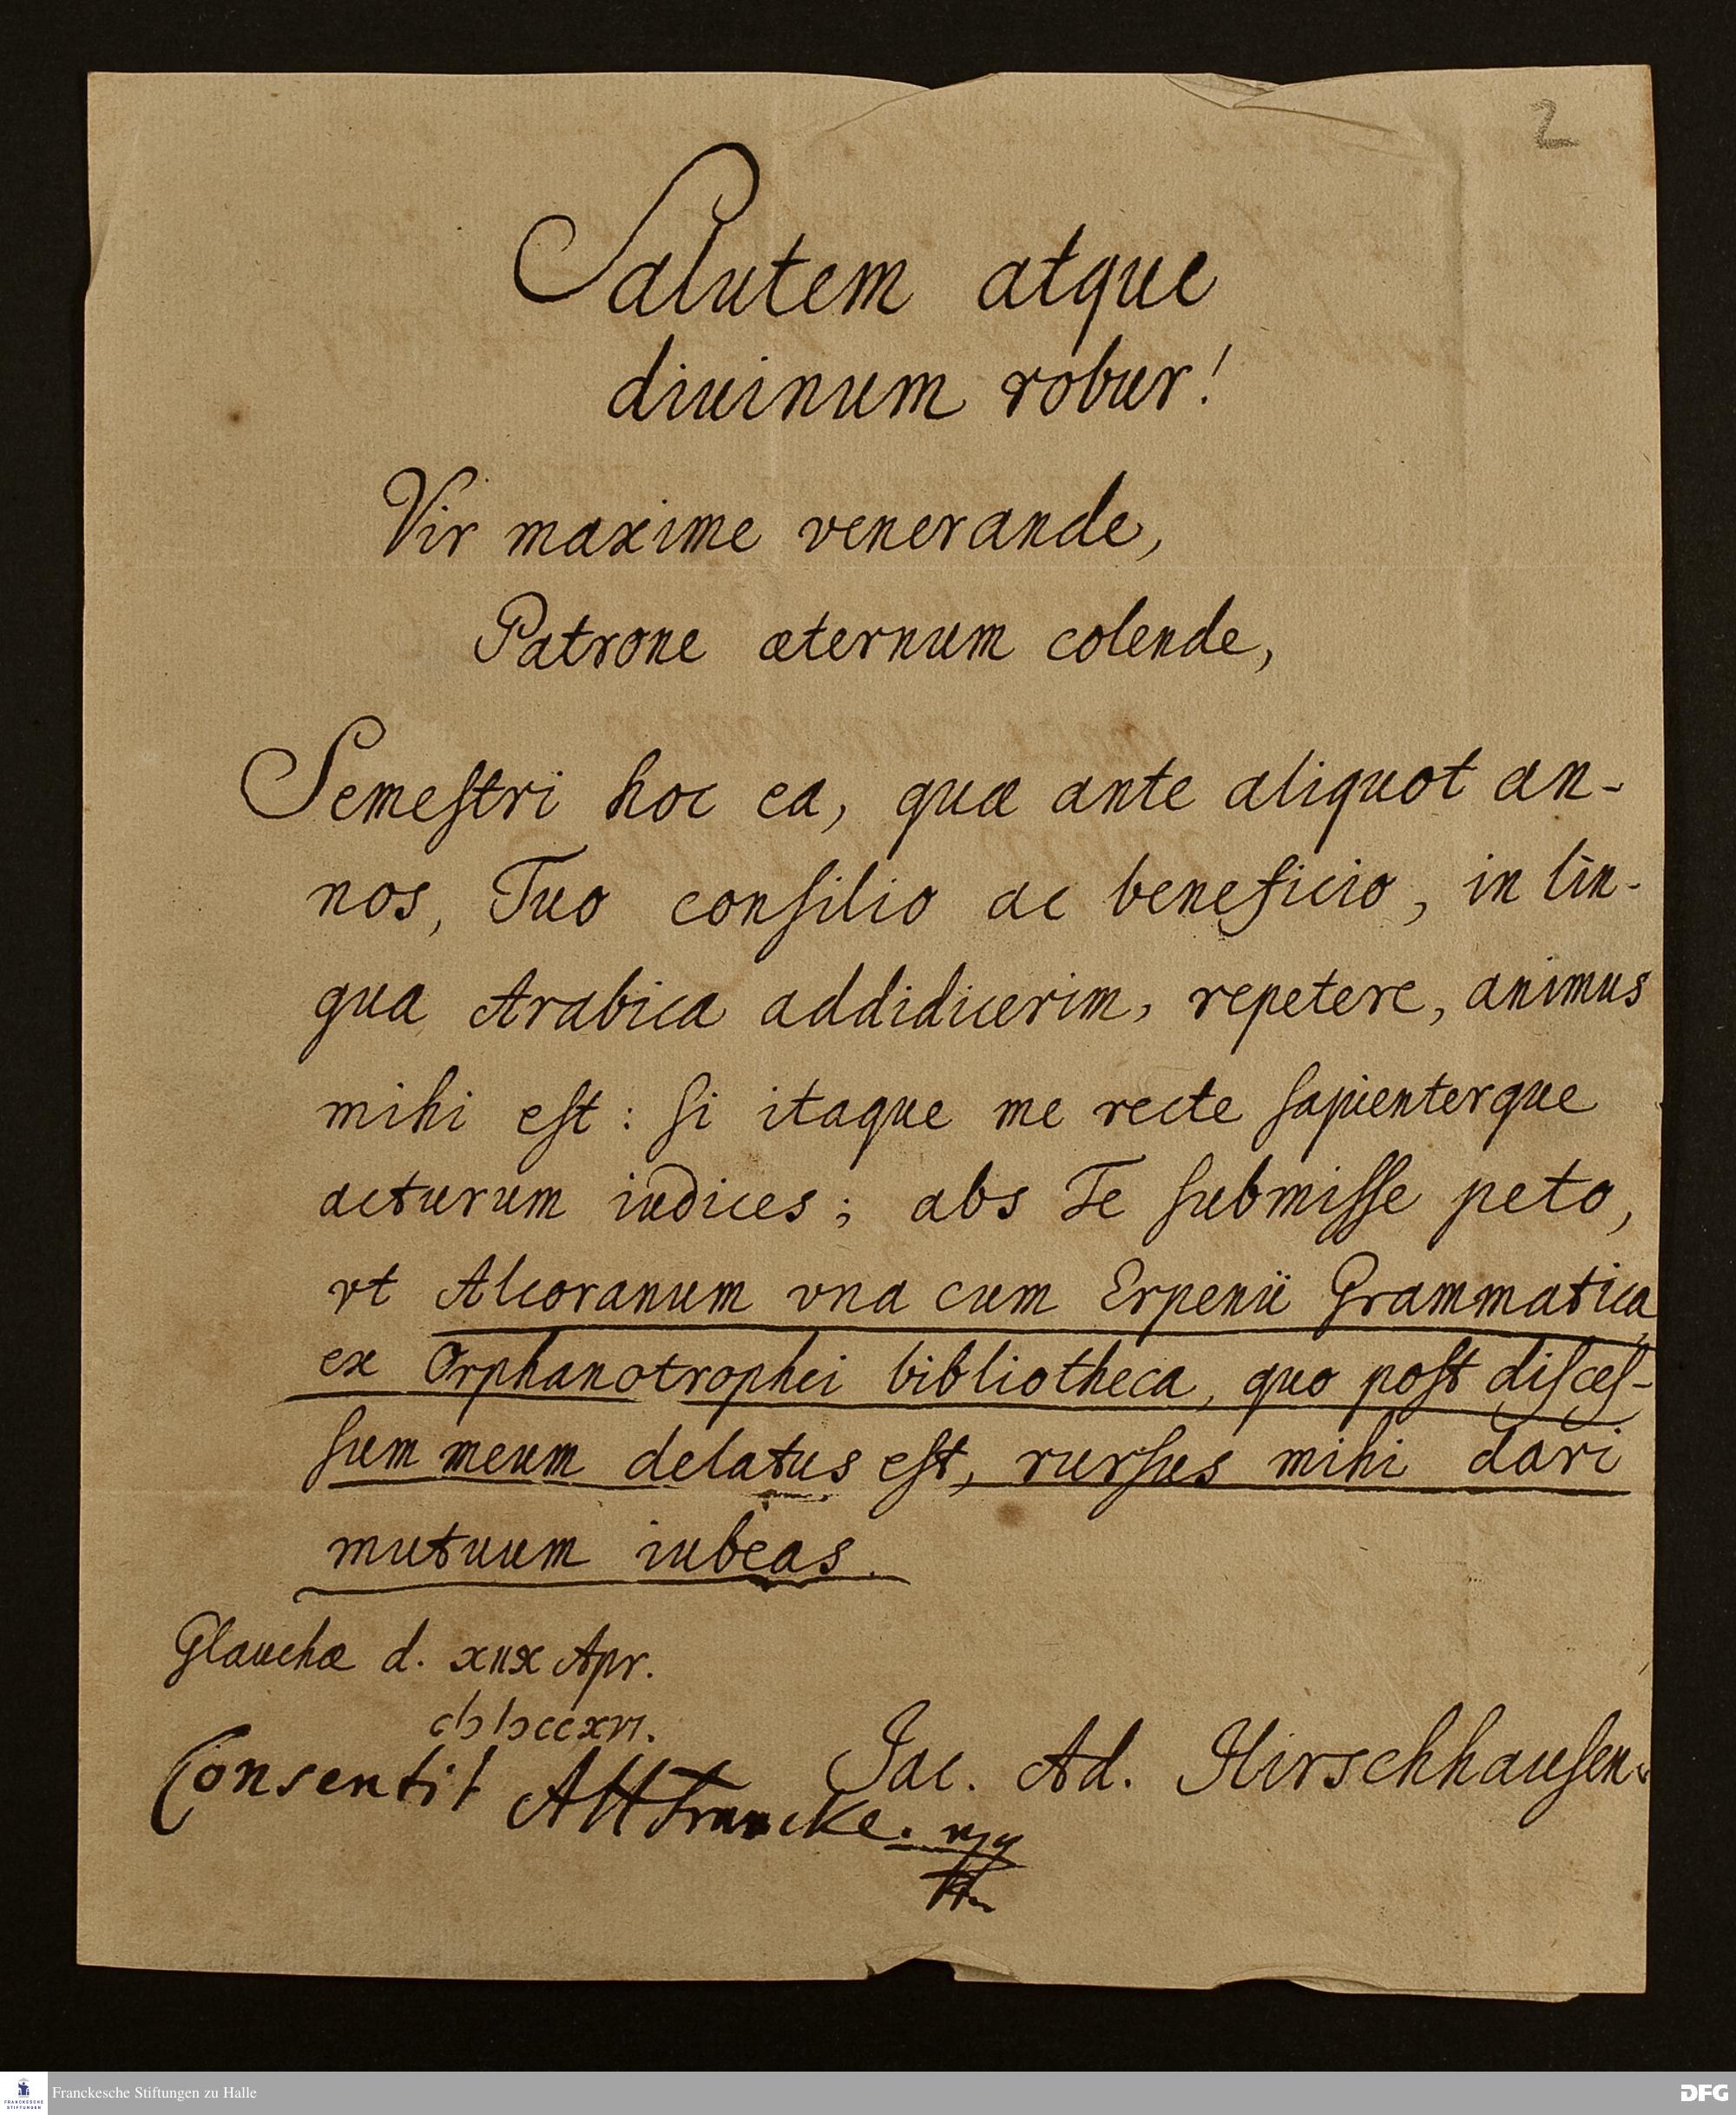 2
Salutem atque
diuinum robur!
Vir maxime venerande,
Patrone æternum colende,
Semeſtri hoc ea, quæ ante aliquot an-
nos, Tuo conſilio ac beneficio, in lin-
gua Arabica addidicerim, repetere, animus
mihi eſt: ſi itaque me recte ſapienterque
acturum iudices; abs Te ſubmiſſe peto,
vt Alcoranum vna cum Erpenii Grammatica
ex Orphanotrophei bibliotheca, quo poſt diſceſ-
ſum meum delatus eſt, rurſus mihi dari
mutuum iubeas.
Glauchæ d. XIIX Apr.
cIɔ Iɔ CC XVI.
Jac. Ad. Hirschhauſen.
Consentit AHFrancke. mp
Franckesche Stiftungen zu Halle
FRANCKESCHE
STIFTUNGEN
DFG